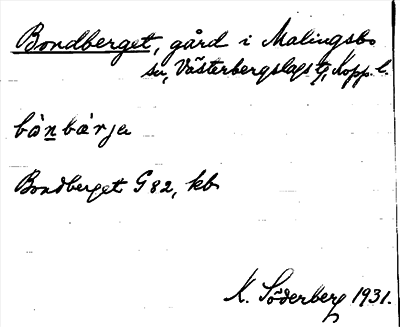 Bondberget, gård i Malingsbo
sn, Västerbergslags tg, Kopp. l.
bànbárja
Bondberget G82, kb
K. Söderberg 1931.